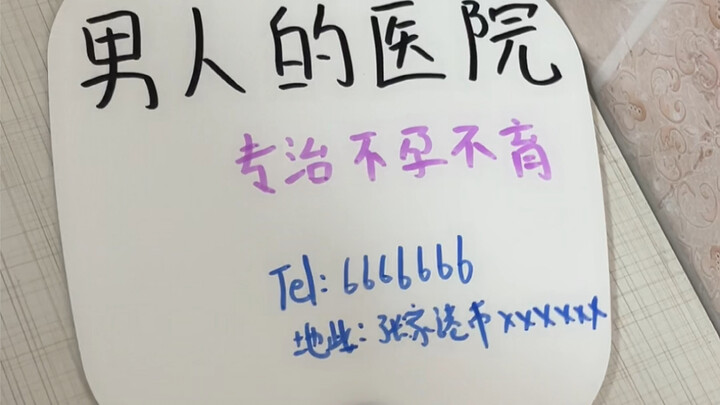 男人的医院
专治不孕不育
Tel: 6666666
地址: 张家港市xxxxxx